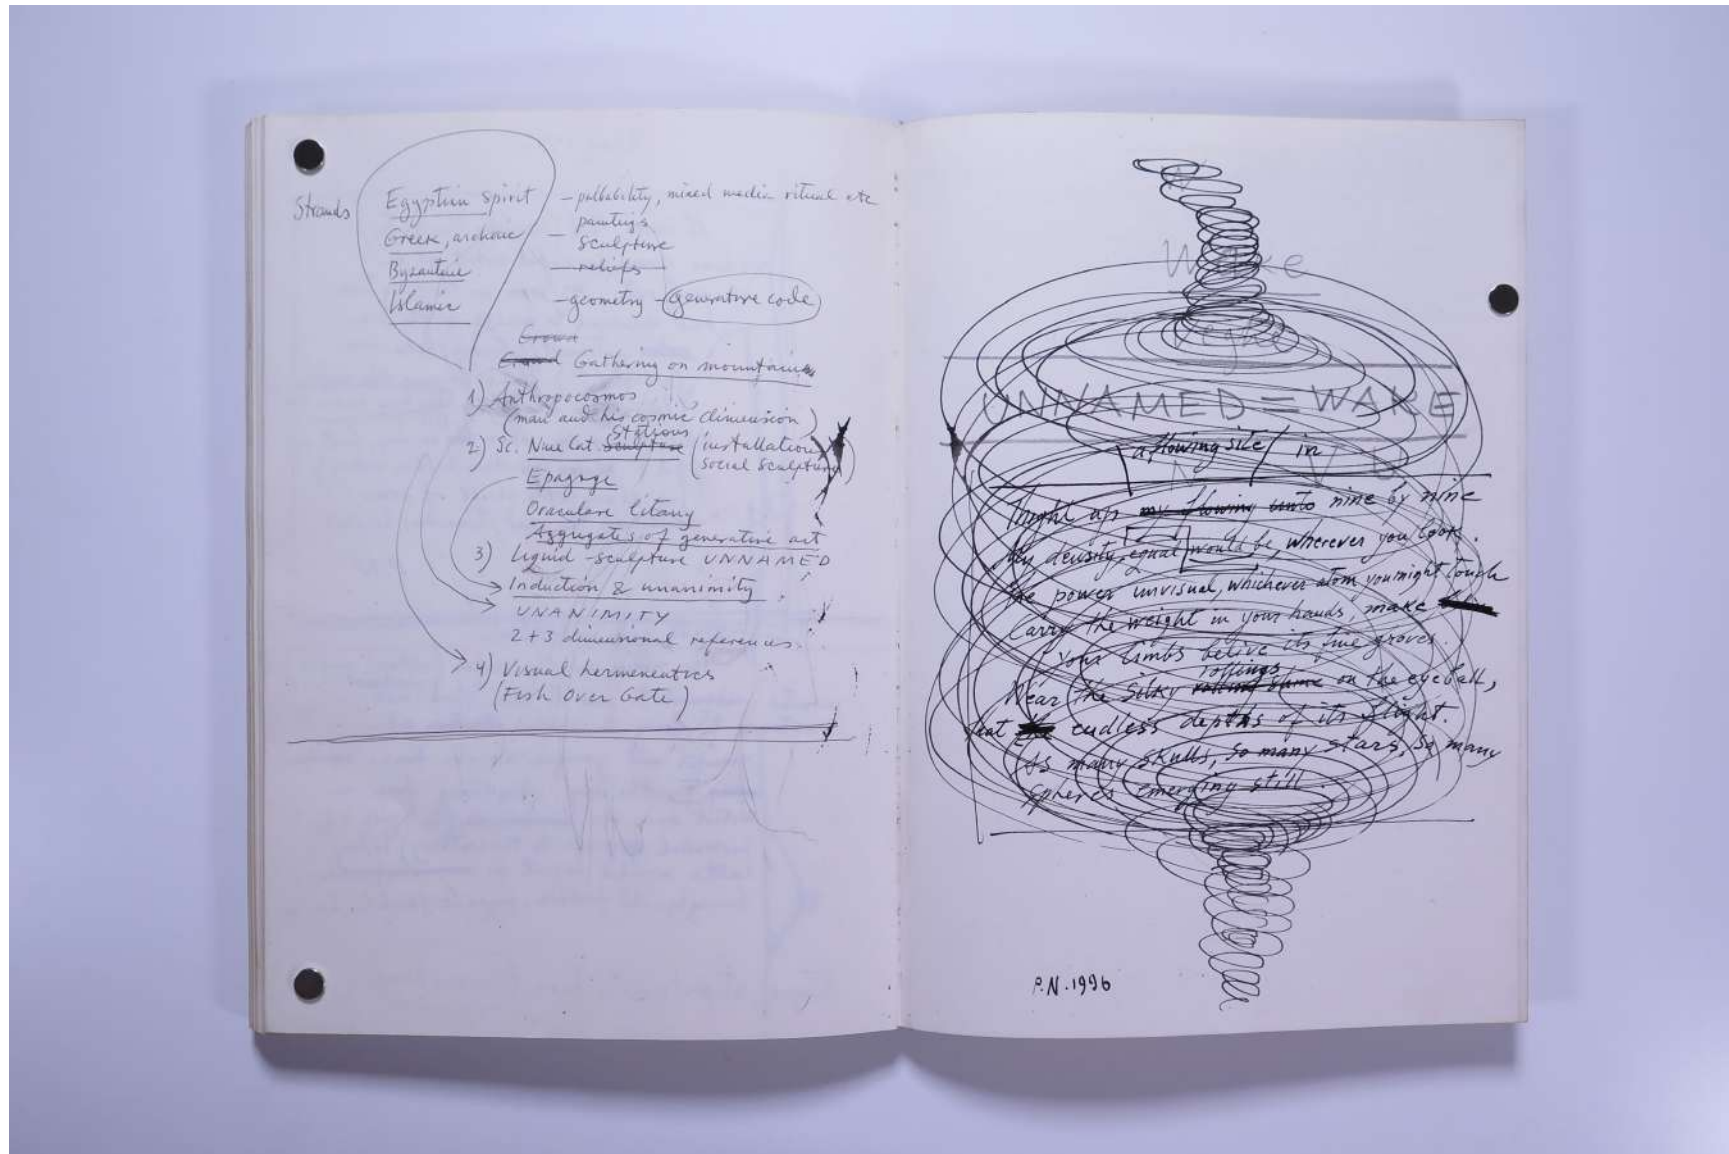 Strands Egyptian spirit – palbability, mixed media ritual etc
Greek, archaic – paintings
sculpture
Byzantine – reliefs
Islamic – geometry – generative code
Crowd
Crowd Gathering on mountains
1) Anthropocosmos
(man and his cosmic dimension)
stations
2) Sc. Nine Cat. Sculpture (installation
social sculpture)
Epagoge
Oraculare litany
Aggregates of generative art
3) Liquid-sculpture UNNAMED
Induction & unanimity
UNANIMITY
2+3 dimensional references
4) Visual hermeneutics
(Fish Over Gate)
Wake
UNNAMED = WAKE
a flowing site / in
my flowing unto nine by nine
My density, equal would be, wherever you look.
The power unvisual, whichever atom you might touch
Carry the weight in your hands, make
your limbs belive its fine groves.
rollings
Near the silky rolling shine on the eyeball,
that endless depths of its flight.
As many skulls, so many stars, so many
spheres emerging still.
P.N. 1996